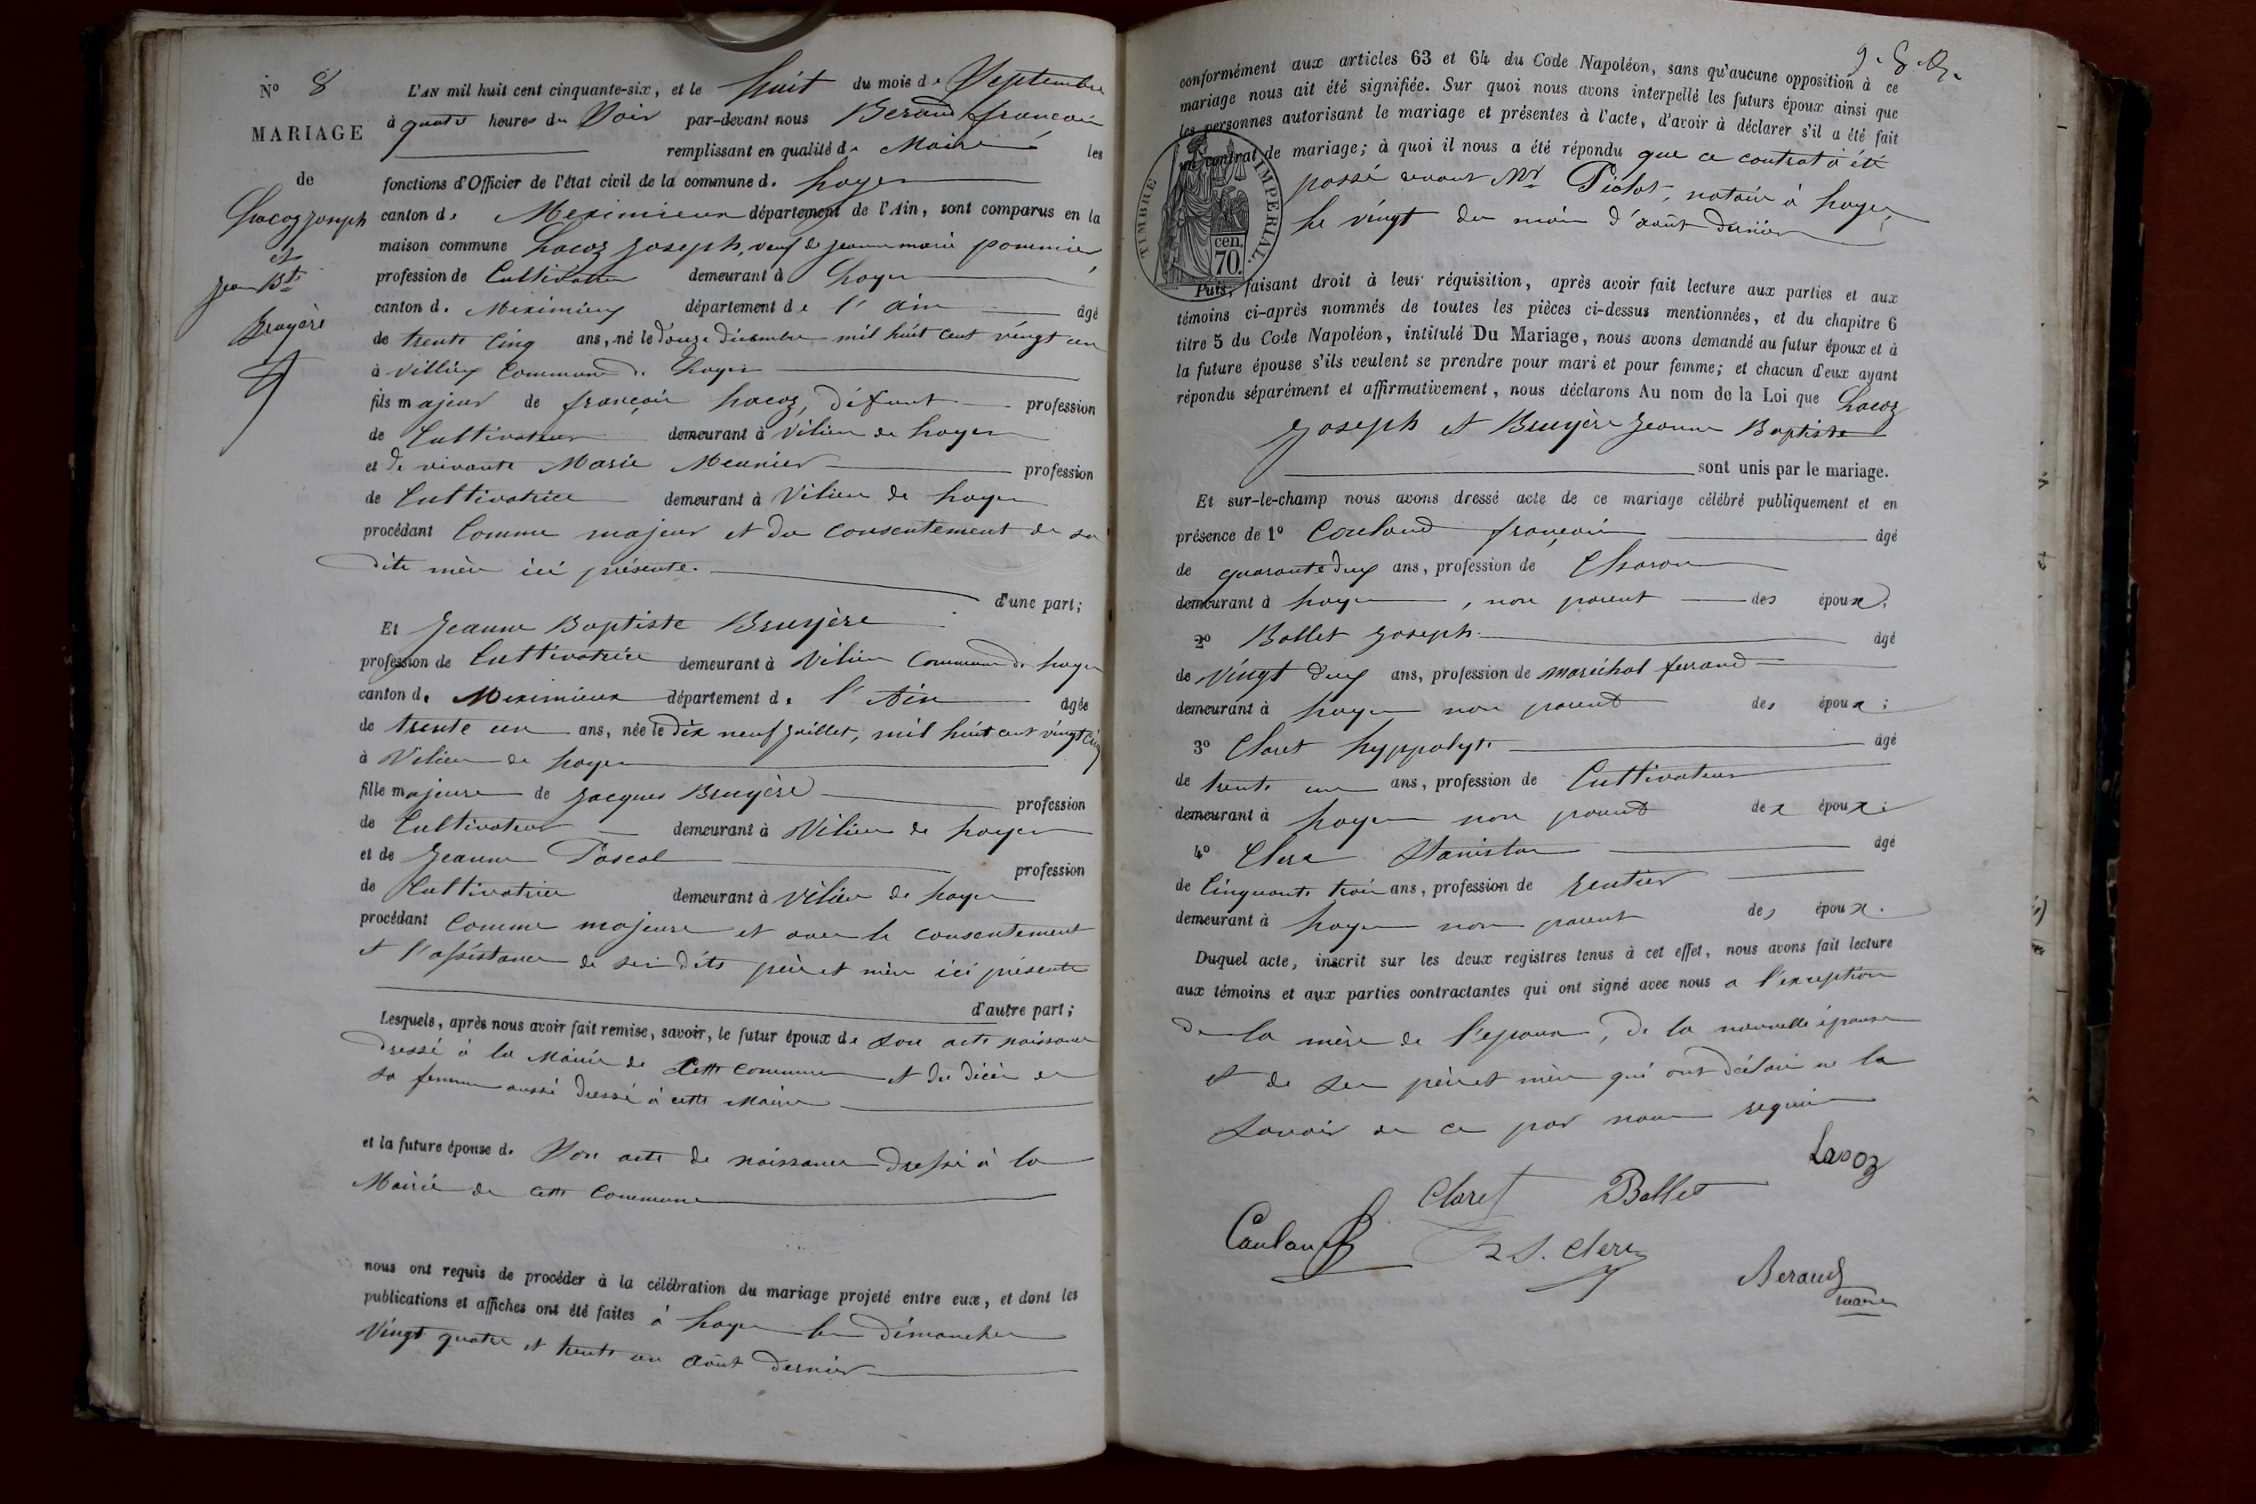 N° 8
MARIAGE
de
Lacoz Joseph
et
Jean Bte
Bruyère
L'AN mil huit cent cinquante-six, et le huit du mois de Septembre
à quatre heures du Soir par-devant nous Beraud françois
remplissant en qualité de Maire les
fonctions d'Officier de l'état civil de la commune de Loyes
canton de Meximieux département de l'Ain, sont comparus en la
maison commune Lacoz Joseph, veuf de jeanne marie pommier,
profession de Cultivateur demeurant à Loyes
canton de Meximieux département de l'ain âgé
de trente cinq ans, né le douze décembre mil huit cent vingt un
à Villieu Commune de Loyes
fils majeur de françois Lacoz, défunt profession
de Cultivateur demeurant à Vilieu de Loyes
et de vivante Marie Meunier profession
de Cultivatrice demeurant à Vilieu de Loyes
procédant Comme majeur et du consentement de sa
dite mère ici présente.
d'une part;
Et Jeanne Baptiste Bruyère
profession de Cultivatrice demeurant à Vilieu Commune de Loyes
canton de Meximieux département de l'Ain âgée
de trente un ans, née le dix neuf Juillet, mil huit cent vingt cinq
à Vilieu de Loyes
fille majeure de Jacques Bruyère profession
de Cultivateur demeurant à Vilieu de Loyes
et de Jeanne Pascal profession
de Cultivatrice demeurant à Vilieu de Loyes
procédant Comme majeure et avec le consentement
et l'assistance de ses dits père et mère ici présents
d'autre part;
Lesquels, après nous avoir fait remise, savoir, le futur époux de son acte naissance
dressé à la Mairie de cette commune et du décès de
sa femme aussi dressé à cette Mairie
et la future épouse de Son acte de naissance dressé à la
Mairie de cette Commune
nous ont requis de procéder à la célébration du mariage projeté entre eux, et dont les
publications et affiches ont été faites à Loyes les dimanches
Vingt quatre et trente un août dernier
conformément aux articles 63 et 64 du Code Napoléon, sans qu'aucune opposition à ce
mariage nous ait été signifiée. Sur quoi nous avons interpellé les futurs époux ainsi que
les personnes autorisant le mariage et présentes à l'acte, d'avoir à déclarer s'il a été fait
un contrat de mariage; à quoi il nous a été répondu que ce contrat a été
passé devant Mr Piolot, notaire à Loyes,
le vingt du mois d'août dernier
TIMBRE IMPERIAL.
cen.
70.
Puis, faisant droit à leur réquisition, après avoir fait lecture aux parties et aux
témoins ci-après nommés de toutes les pièces ci-dessus mentionnées, et du chapitre 6
titre 5 du Code Napoléon, intitulé Du Mariage, nous avons demandé au futur époux et à
la future épouse s'ils veulent se prendre pour mari et pour femme; et chacun d'eux ayant
répondu séparément et affirmativement, nous déclarons Au nom de la Loi que Lacoz
Joseph et Bruyère Jeanne Baptiste
sont unis par le mariage.
Et sur-le-champ nous avons dressé acte de ce mariage célébré publiquement et en
présence de 1° Couland françois âgé
de quarante deux ans, profession de Charon
demeurant à Loyes, non parent des époux.
2° Ballet Joseph âgé
de vingt deux ans, profession de maréchal ferrand
demeurant à Loyes non parent des époux;
3° Claret hyppolyte âgé
de trente un ans, profession de Cultivateur
demeurant à Loyes non parent des époux;
4° Clerc Stanislas âgé
de Cinquante trois ans, profession de rentier
demeurant à Loyes non parent des époux.
Duquel acte, inscrit sur les deux registres tenus à cet effet, nous avons fait lecture
aux témoins et aux parties contractantes qui ont signé avec nous a l'exception
de la mère de l'epoux, de la nouvelle épouse
et de ses père et mère qui ont déclaré ne le
savoir de ce par nous requis
Lacoz
Claret Ballet
Couland
S. Clerc
Beraud
maire